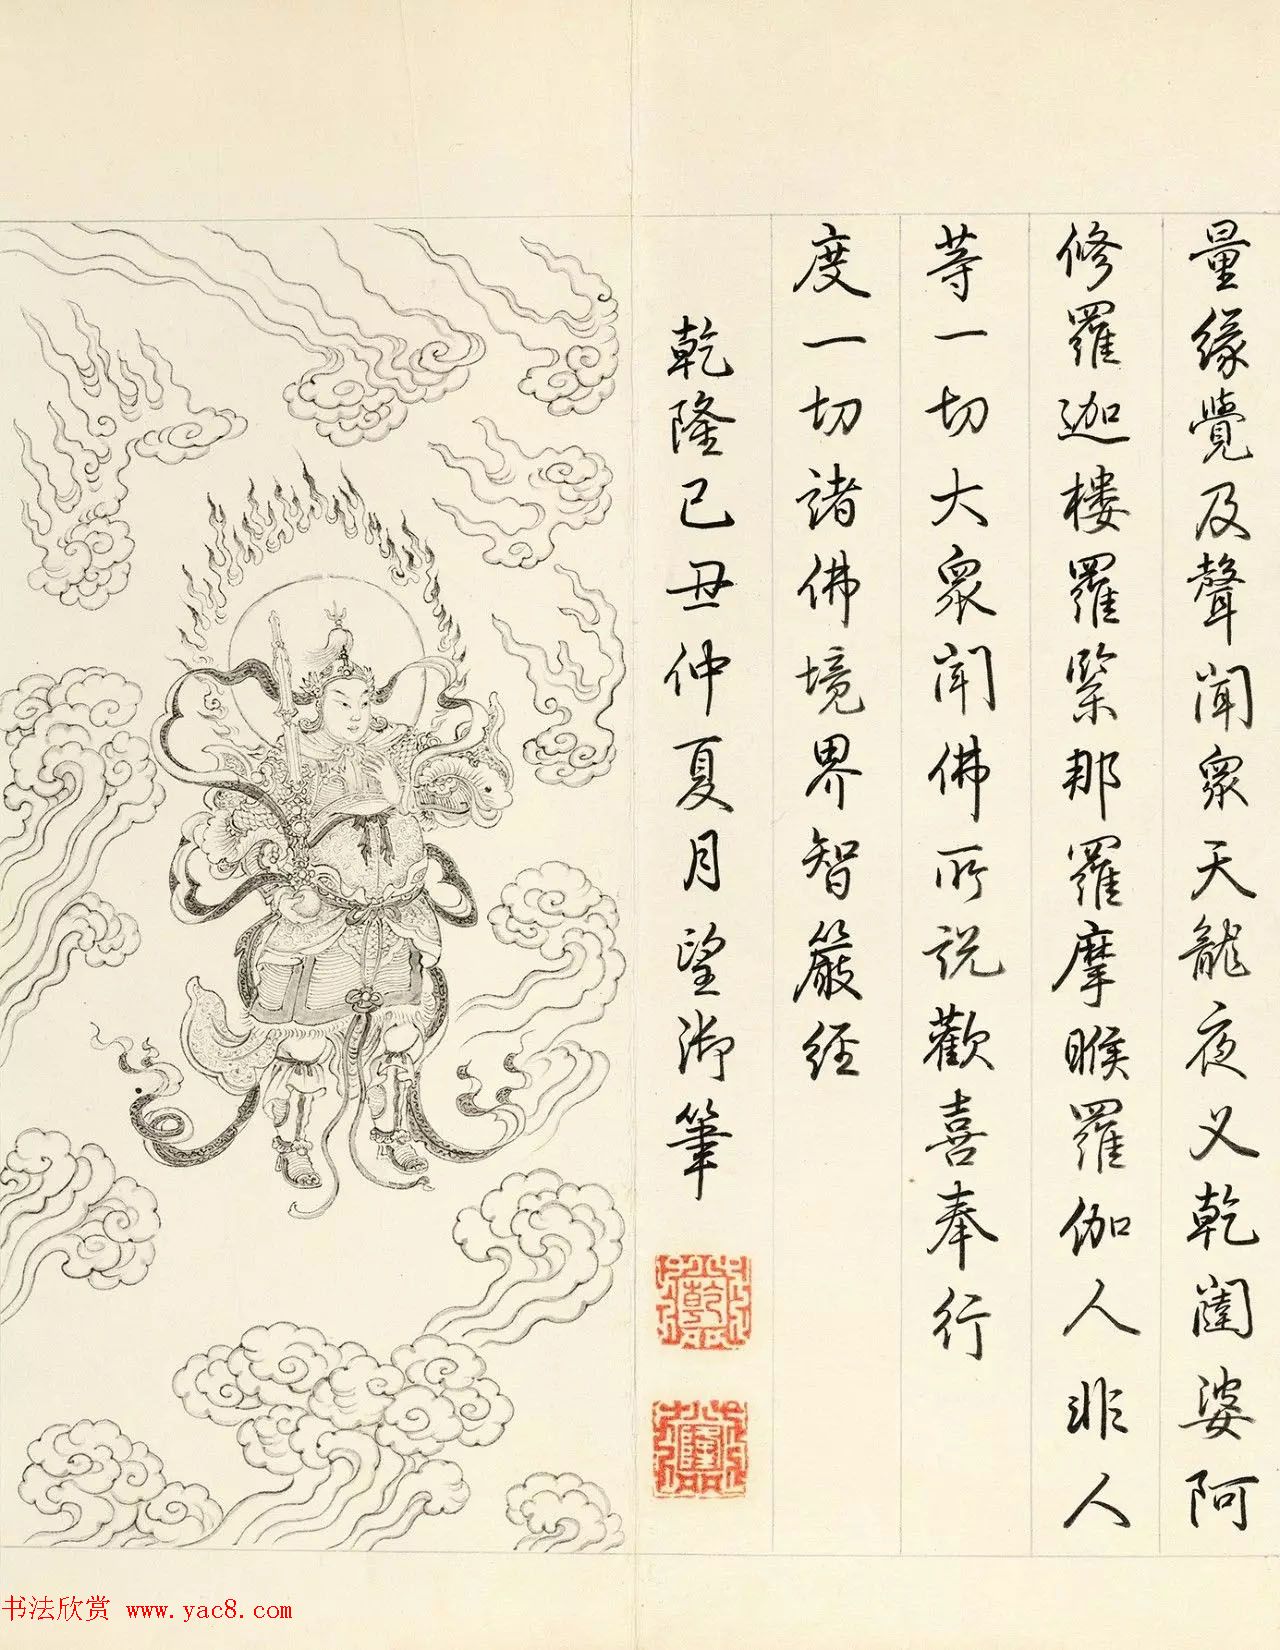 量緣覺及聲聞眾天龍夜叉乾闥婆阿
修羅迦樓羅緊那羅摩睺羅伽人非人
等一切大眾聞佛所説歡喜奉行
度一切諸佛境界智嚴經
乾隆己丑仲夏月望御筆
乾
隆
书法欣赏 www.yac8.com